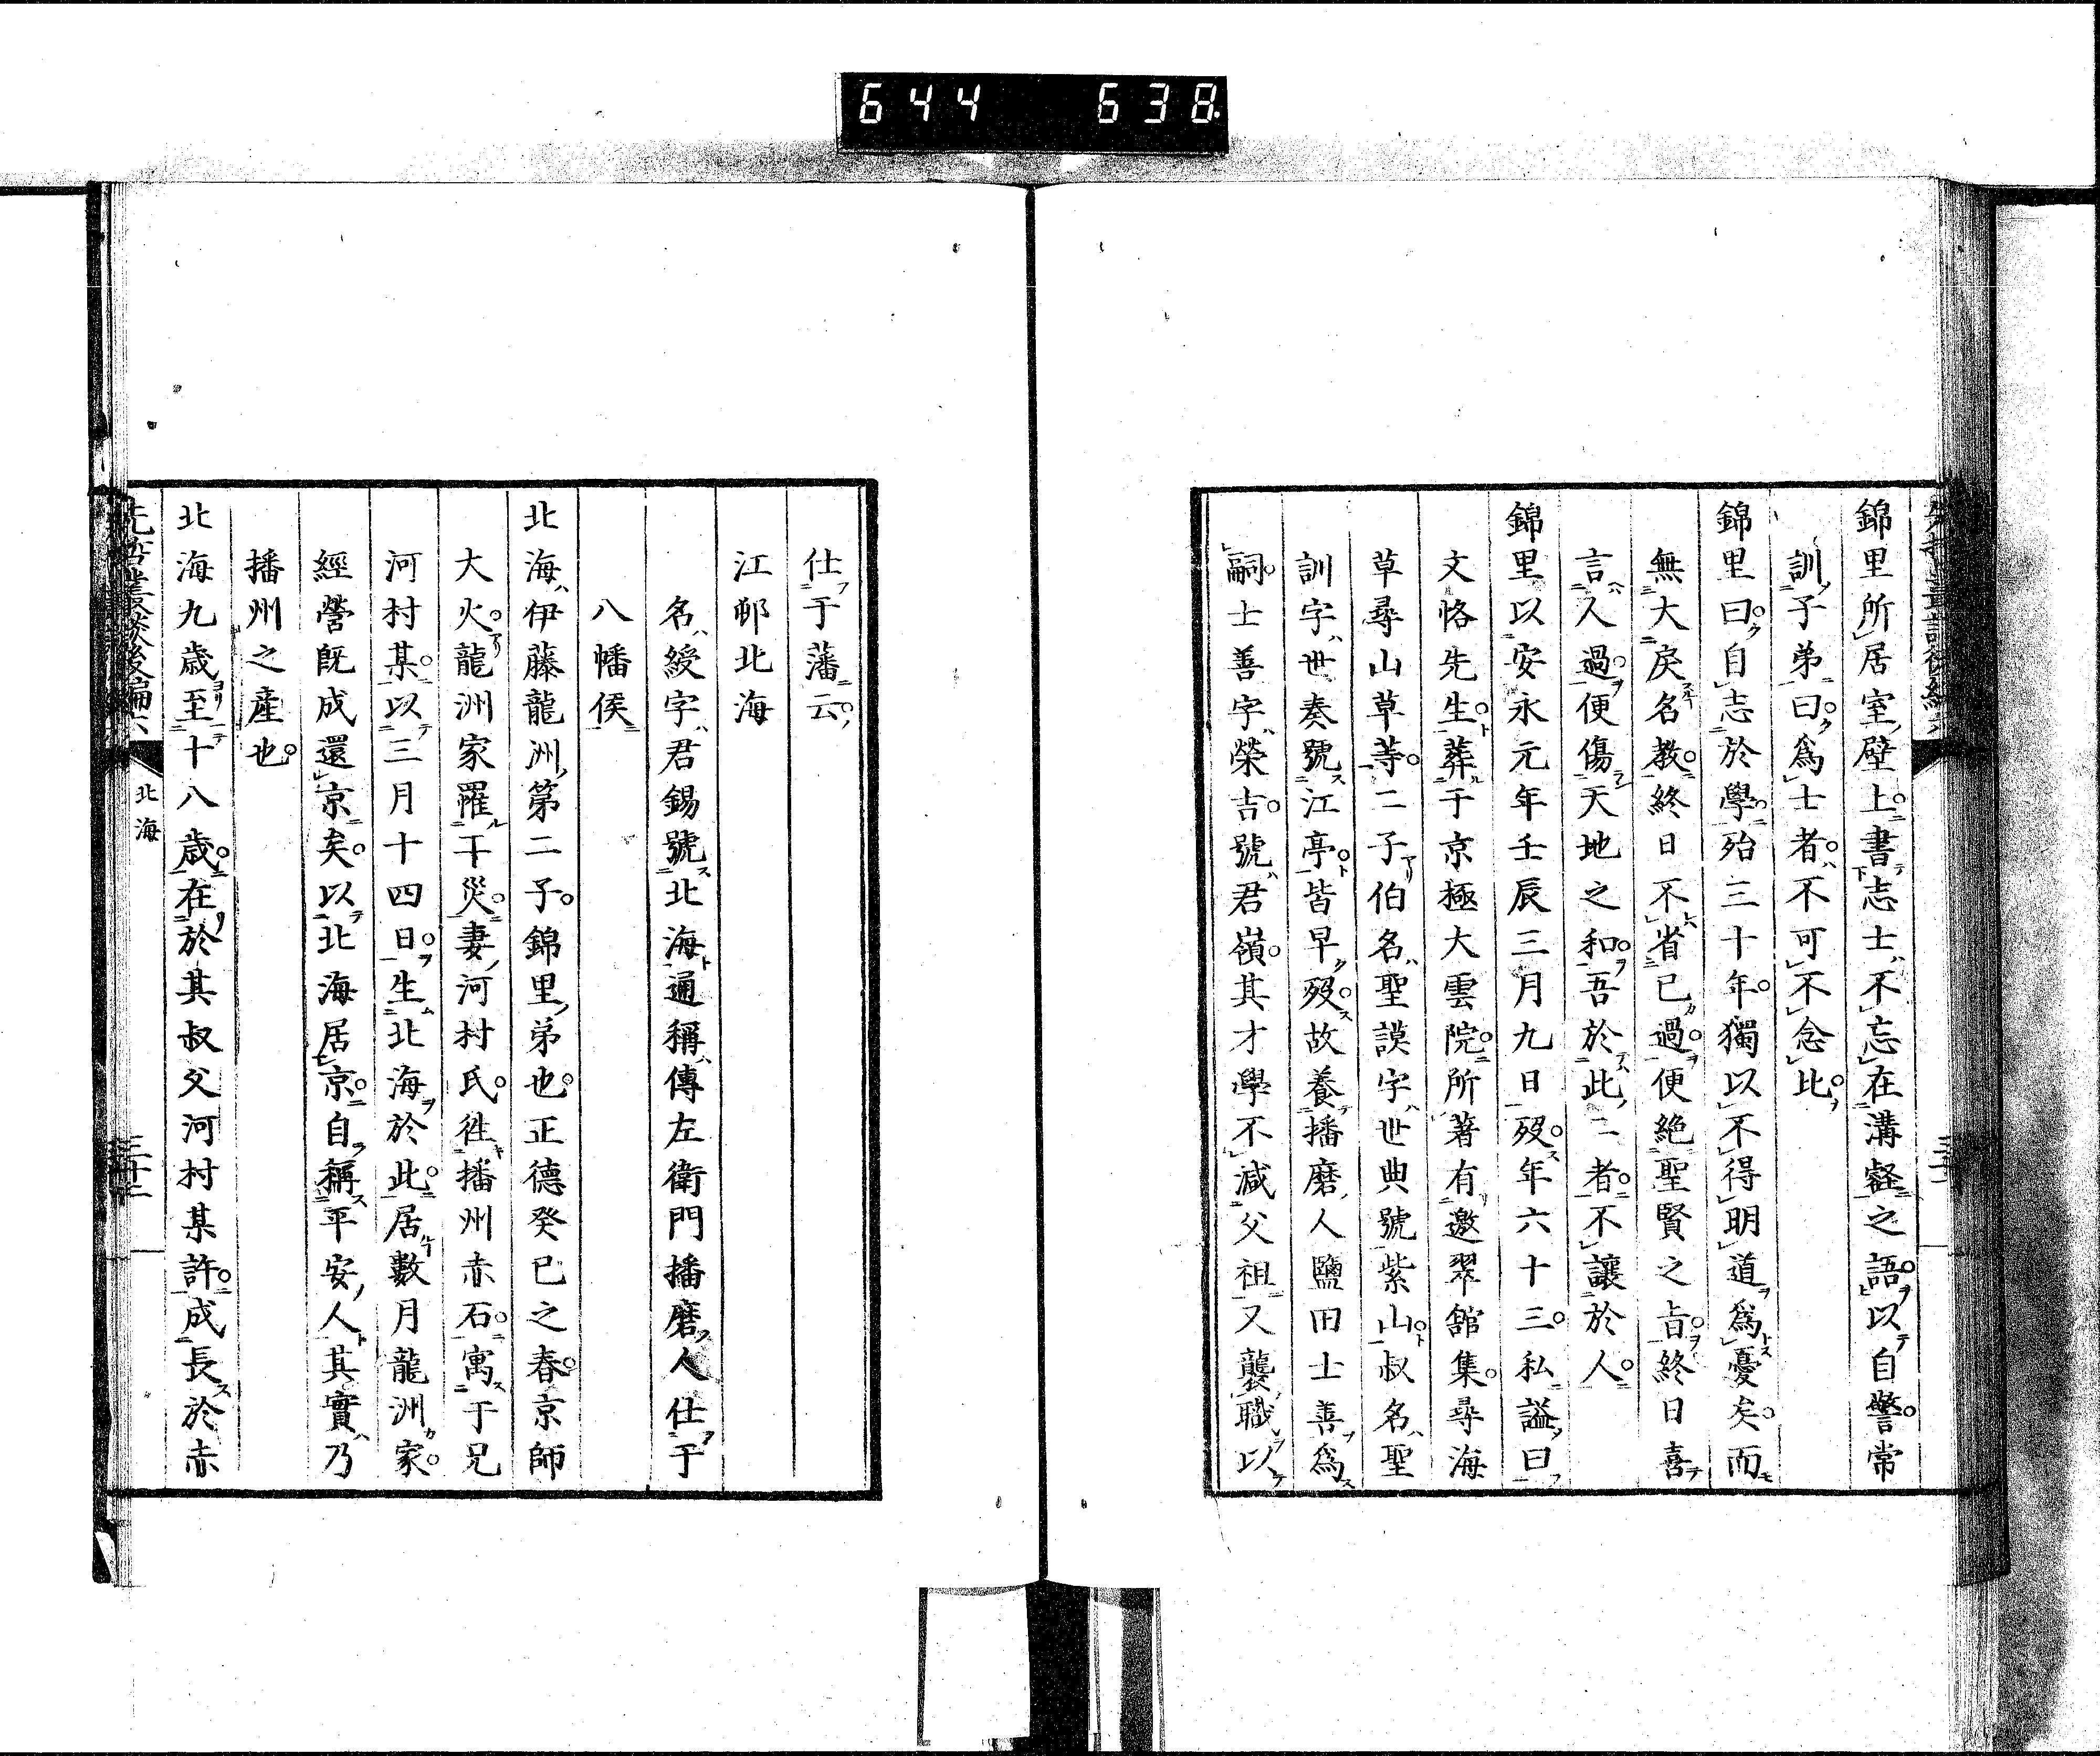 644 638
錦里所居室壁上書志士不忘在溝壑之語以自警常
訓子弟曰爲士者不可不念此
錦里曰自志於學殆三十年獨以不得明道爲憂矣而
無大戾名教終日不省已過便絶聖賢之旨終日喜
言人過便傷天地之和吾於此二者不讓於人
錦里以安永元年壬辰三月九日歿年六十三私謚曰
文恪先生葬于京極大雲院所著有邀翠舘集尋海
草尋山草等二子伯名聖謨字世典號紫山叔名聖
訓字世奏號江亭皆早歿故養播磨人鹽田士善爲
嗣士善字榮吉號君嶺其才學不減父祖又襲職以
仕于藩云
江邨北海
名綬字君錫號北海通稱傳左衛門播磨人仕于
八幡侯
北海伊藤龍洲第二子錦里弟也正德癸巳之春京師
大火龍洲家罹于災妻河村氏徃播州赤石寓于兄
河村某以三月十四日生北海於此居數月龍洲家
經營既成還京矣以北海居京自稱平安人其實乃
播州之產也
北海九歳至十八歳在於其叔父河村某許成長於赤
先哲叢談後編六
北海
三十二